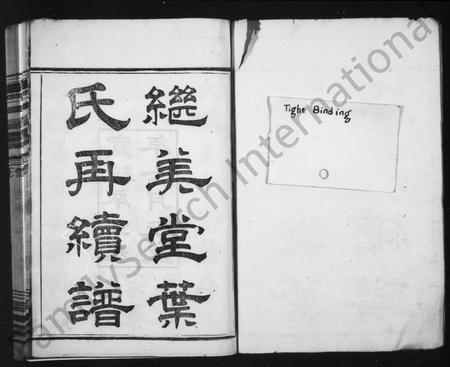 繼美堂葉
氏再續譜
Tight Binding
FamilySearch International